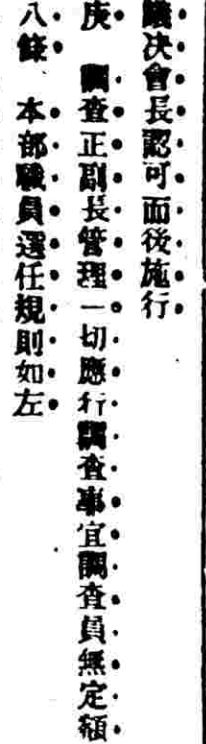 議決會長認可而後施行
庚　調查正副長管理一切應行調查事宜調查員無定額
八條　本部職員選任規則如左